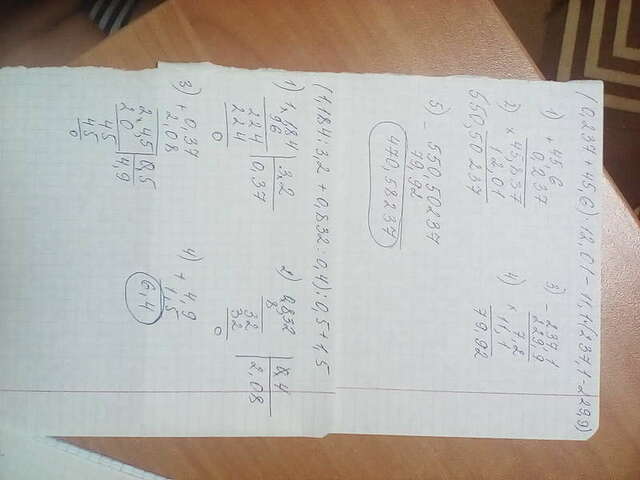 (0,237 + 45,6) · 12,01 - 11,1 · (237,1 - 229,9)
1) + 45,6
0,237
2) × 45,837
12,01
550,50237
3) - 237,1
229,9
4) × 7,2
11,1
79,92
5) - 550,50237
79,92
470,58237
(1,184 : 3,2 + 0,832 : 0,4) : 0,5 + 1,5
1) 1,184 3,2
96 0,37
224
224
0
2) 0,832 0,4
8 2,08
32
32
0
3) + 0,37
2,08
2,45 0,5
2 0 4,9
45
45
0
4) + 4,9
1,5
6,4